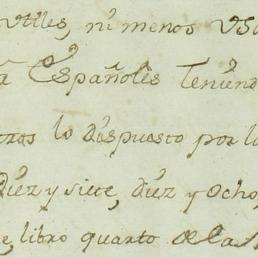 utiles, ni menos Usa
a Españoles Teniend
rras lo dispuesto por la
Diez y siete, diez y ocho,
e, libro quarto de la